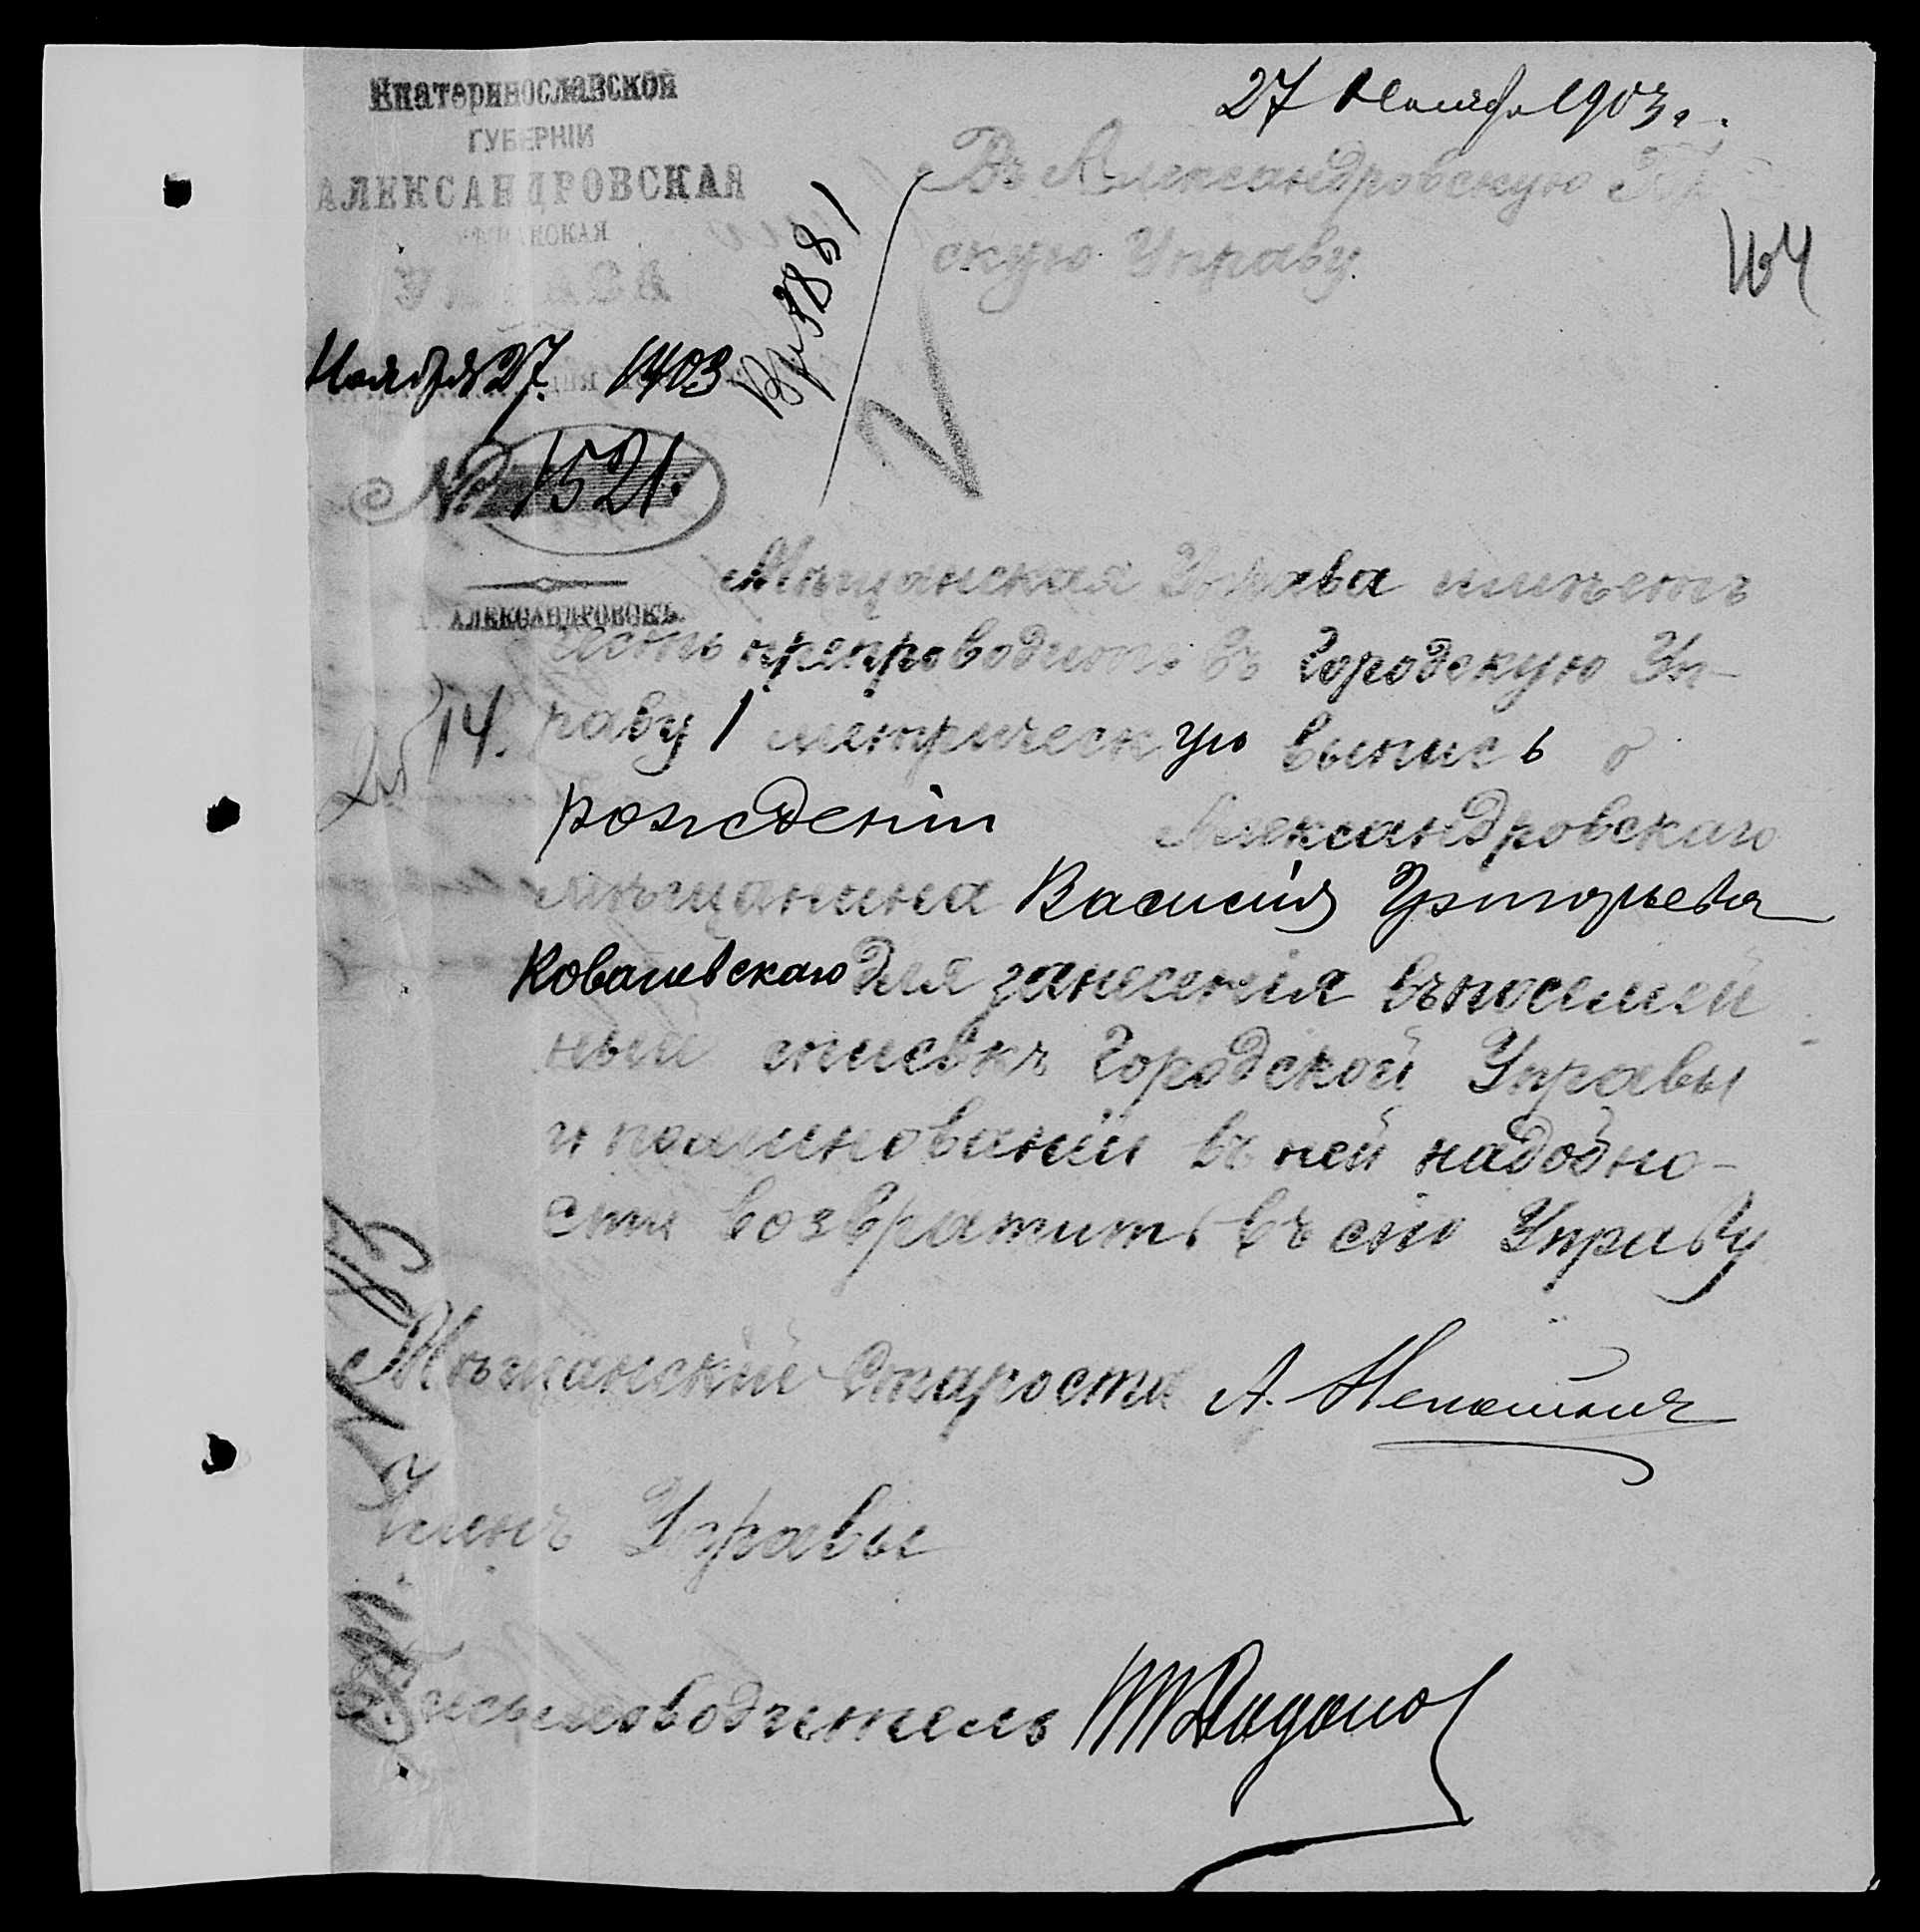 Екатеринославской
ГУБЕРНІИ
АЛЕКСАНДРОВСКАЯ
УПРАВА
Ноября 27 1903
№ 1521.
АЛЕКСАНДРОВСКЪ.
27 Ноября 1903 г.
Въ Александровскую
скую Управу
Вх 3881
164
Мѣщанская Управа имѣетъ
честь препроводить въ Городскую Уп-
раву 1 метрическую выпись о
рожденіи Александровскаго
мѣщанина Василія Григорьева
Ковалевскаго для занесенія въ посемей
ный списокъ Городской Управы
и по минованіи въ ней надобно-
сти возвратить въ сію Управу
14.
Мѣщанскій Староста А.
Членъ Управы
Письмоводитель